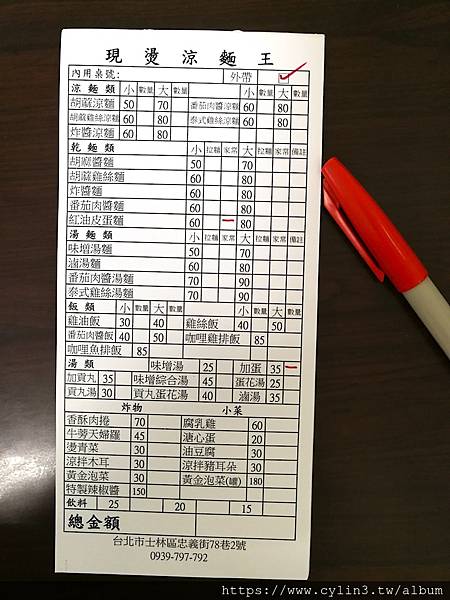 現燙涼麵王
內用桌號: 外帶
涼麵類 小 數量 大 數量 小 數量 大 數量
胡麻涼麵 50 70 番茄肉醬涼麵 60 80
胡麻雞絲涼麵 60 80 泰式雞絲涼麵 60 80
炸醬涼麵 60 80
乾麵類 小 拉麵 家常 大 拉麵 家常 備註
胡麻醬麵 50 70
胡麻雞絲麵 60 80
炸醬麵 60 80
番茄肉醬麵 60 80
紅油皮蛋麵 60 80
湯麵類 小 拉麵 家常 大 拉麵 家常 備註
味增湯麵 50 70
滷湯麵 60 80
番茄肉醬湯麵 70 90
泰式雞絲湯麵 70 90
飯類 小 數量 大 數量 小 數量 大 數量
雞油飯 30 40 雞絲飯 40 50
番茄肉醬飯 40 50 咖哩雞排飯 85
咖哩魚排飯 85
湯類 味增湯 25 加蛋 35
加貢丸 35 味增綜合湯 45 蛋花湯 25
貢丸湯 30 貢丸蛋花湯 40 滷湯 35
炸物 小菜
香酥肉捲 70 腐乳雞 60
牛蒡天婦羅 45 溏心蛋 20
燙青菜 30 油豆腐 30
涼拌木耳 30 涼拌豬耳朵 30
黃金泡菜 30 黃金泡菜(罐) 180
特製辣椒醬 150
飲料 25 20 15
總金額
台北市士林區忠義街78巷2號
0939-797-792
https://www.cylin3.tw/album